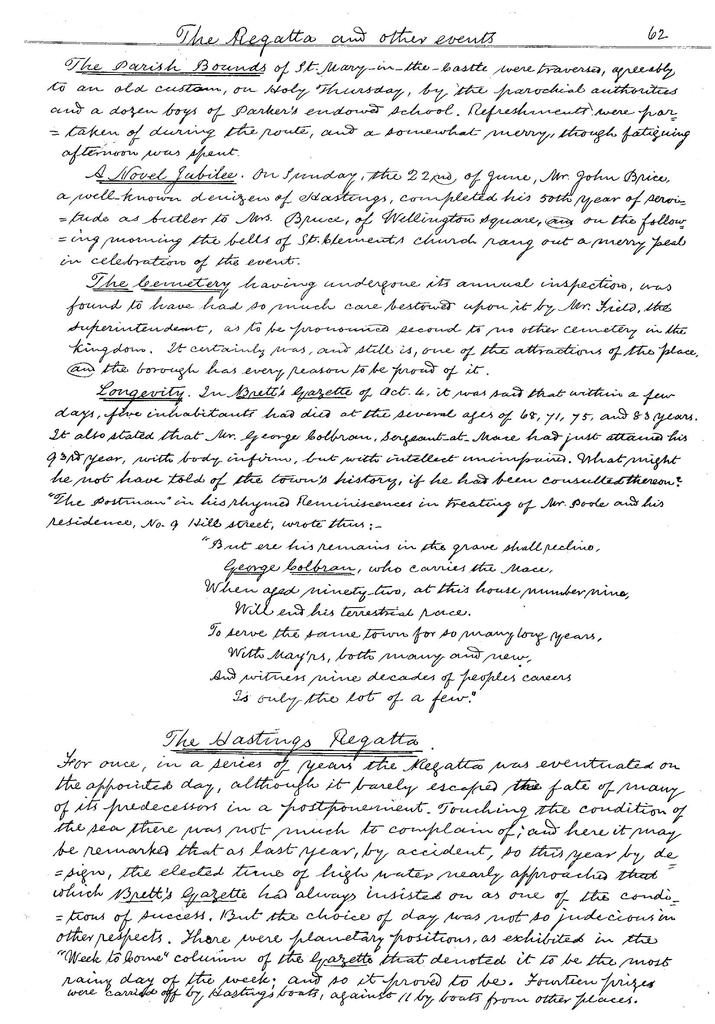 The Regatta and other events 62
The Parish Bounds of St. Mary-in-the-Castle were traversed, agreeably
to an old custom, on Holy Thursday, by the parochial authorities
and a dozen boys of Parker's endowed school. Refreshments were par=
=taken of during the route, and a somewhat merry, though fatiguing
afternoon was spent.
A Novel Jubilee. On Sunday, the 22nd, of June, Mr. John Brice,
a well-known denizen of Hastings, completed his 50th year of servi=
=tude as butler to Mrs. Bruce, of Wellington Square, and on the follow=
=ing morning the bells of St. Clement's church rang out a merry peal
in celebration of the event.
The Cemetery having undergone its annual inspection, was
found to have had so much care bestowed upon it by Mr. Field, the
superintendent, as to be pronounced second to no other cemetery in the
kingdom. It certainly was, and still is, one of the attractions of the place,
and the borough has every reason to be proud of it.
Longevity. In Brett's Gazette of Oct. 4, it was said that within a few
days, five inhabitants had died at the several ages of 68, 71, 75, and 83 years.
It also stated that Mr. George Colbran, Sergeant-at-Mace had just attained his
93rd year, with body infirm, but with intellect unimpaired. What might
he not have told of the town's history, if he had been consulted thereon?
"The Postman" in his rhymed Reminiscences in treating of Mr. Poole and his
residence, No. 9 Hill street, wrote thus:-
"But ere his remains in the grave shall recline,
George Colbran, who carries the Mace,
When aged ninety-two, at this house number nine,
Will end his terrestrial race.
To serve the same town for so many long years,
With May'rs, both many and new,
And witness nine decades of peoples careers
Is only the lot of a few."
The Hastings Regatta.
For once, in a series of years the Regatta was eventuated on
the appointed day, although it barely escaped the fate of many
of its predecessors in a postponement. Touching the condition of
the sea there was not much to complain of; and here it may
be remarked that as last year, by accident, so this year by de=
=sign, the elected time of high water nearly approached that
which Brett's Gazette had always insisted on as one of the condi=
=tions of success. But the choice of day was not so judecious in
other respects. There were planetary positions, as exhibited in the
"Week to Come" column of the Gazette that denoted it to be the most
rainy day of the week; and so it proved to be. Fourteen prizes
were carried off by Hastings boats, against 11 by boats from other places.